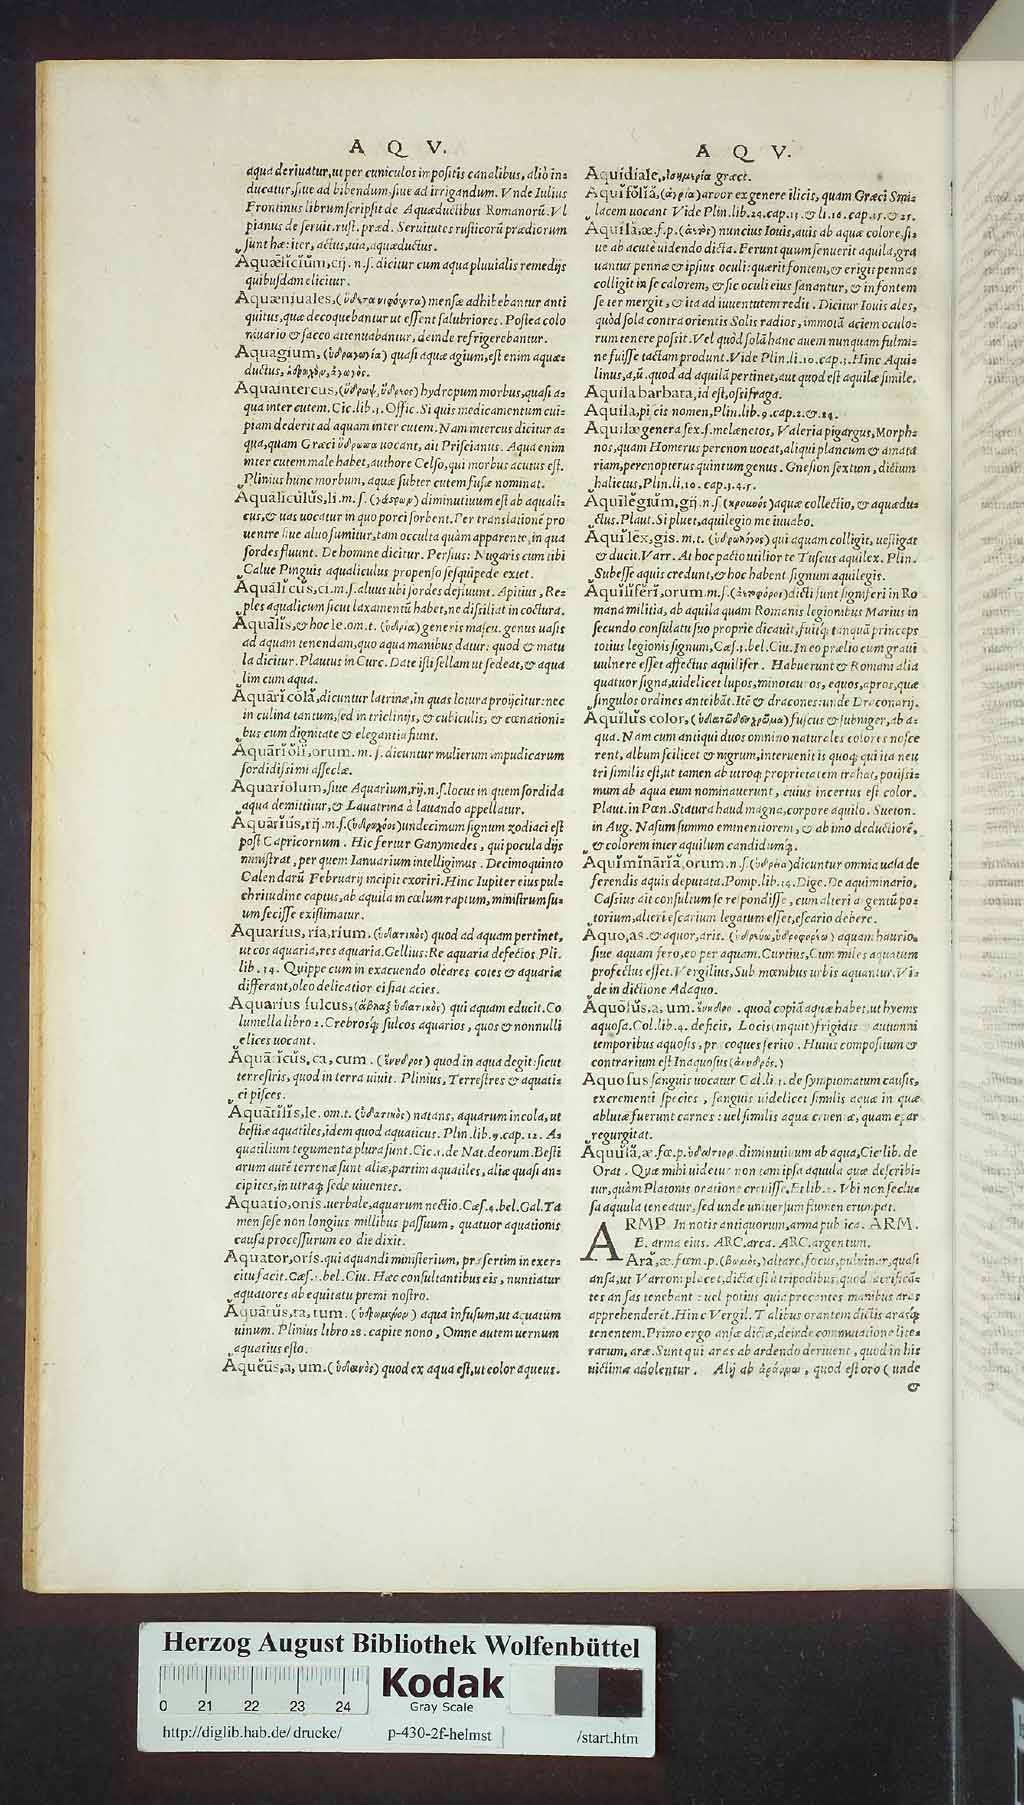 A Q V.
aqua deriuatur, ut per cuniculos impositis canalibus, aliò in=
ducatur, siue ad bibendum, siue ad irrigandum. Vnde Iulius
Frontinus librum scripsit de Aquæductibus Romanorũ. Vl
pianus de seruit. rust. præd. Seruitutes rusticorũ prædiorum
sunt hæ: iter, actus, uia, aquæductus.
Aquælicium, cij. n. s. dicitur cum aqua pluuialis remedijs
quibusdam elicitur.
Aquæniuales, mensæ adhibebantur anti
quitus, quæ decoquebantur ut essent salubriores. Postea colo
niuario & sacco attenuabantur, deinde refrigerabantur.
Aquagium, (ὑδραγωγία) quasi aquæ agium, est enim aquæ=
ductus,
Aquaintercus, (ὕδρωψ, hydropum morbus, quasi a=
qua inter cutem. Cic. lib. 3. Offic. Si quis medicamentum cui=
piam dederit ad aquam inter cutem. Nam intercus dicitur a=
qua, quam Græci ὕδρωπα uocant, ait Priscianus. Aqua enim
inter cutem male habet, authore Celso, qui morbus acutus est.
Plinius hunc morbum, aquæ subter cutem fusæ nominat.
Aqualiculus, li. m. s. (γάστρων) diminutiuum est ab aquali=
cus, & uas uocatur in quo porci sorbent. Per translationẽ pro
uentre siue aluo sumitur, tam occulta quàm apparente, in qua
sordes fluunt. De homine dicitur. Persius: Nugaris cum tibi
Calue Pinguis aqualiculus propenso sesquipede extet.
Aqualicus, ci. m. s. aluus ubi sordes defluunt. Apitius, Re=
ples aqualicum sicut laxamentũ habet, ne dissiliat in coctura.
Aqualis, & hoc le. om. t. (ὑδρία) generis mascu. genus uasis
ad aquam tenendam, quo aqua manibus datur: quod & matu
la dicitur. Plautus in Curc. Date isti sellam ut sedeat, & aqua
lim cum aqua.
Aquaricola, dicuntur latrinæ, in quas lotura proijcitur: nec
in culina tantum, sed in triclinijs, & cubiculis, & cœnationi=
bus cum dignitate & elegantia fiunt.
Aquarioli, orum. m. s. dicuntur mulierum impudicarum
sordidissimi asseclæ.
Aquariolum, siue Aquarium, rij. n. s. locus in quem sordida
aqua demittitur, & Lauatrina à lauando appellatur.
Aquarius, rij. m. s. (ὑδροχόος) undecimum signum zodiaci est
post Capricornum. Hic fertur Ganymedes, qui pocula dijs
ministrat, per quem Ianuarium intelligimus. Decimoquinto
Calendarũ Februarij incipit exoriri. Hinc Iupiter eius pul=
chritudine captus, ab aquila in cœlum raptum, ministrum su=
um fecisse existimatur.
Aquarius, ria, rium. (ὑδατικὸς) quod ad aquam pertinet,
ut cos aquaria, res aquaria. Gellius: Re aquaria defectos. Pli.
lib. 14. Quippe cum in exacuendo oleares cotes & aquariæ
differant, oleo delicatior ei fiat acies.
Aquarius sulcus, qui aquam educit. Co
lumella libro 2. Crebrosq́; sulcos aquarios, quos & nonnulli
elices uocant.
Aquaticus, ca, cum. (ἔνυδρος) quod in aqua degit: sicut
terrestris, quod in terra uiuit. Plinius, Terrestres & aquati=
ci pisces.
Aquatilis, le. om. t. (ὑδατικὸς) natans, aquarum incola, ut
bestiæ aquatiles, idem quod aquaticus. Plin. lib. 9. cap. 12. A=
quatilium tegumenta plura sunt. Cic. 2. de Nat. deorum. Besti
arum autẽ terrenæ sunt aliæ, partim aquatiles, aliæ quasi an=
cipites, in utraq́; sede uiuentes.
Aquatio, onis. uerbale, aquarum nectio. Cæs. 4. bel. Gal. Ta
men sese non longius millibus passuum, quatuor aquationis
causa processurum eo die dixit.
Aquator, oris. qui aquandi ministerium, præsertim in exer=
citu facit. Cæs. 1. bel. Ciu. Hæc consultantibus eis, nuntiatur
aquatores ab equitatu premi nostro.
Aquatus, ta, tum. aqua infusum, ut aquatum
uinum. Plinius libro 28. capite nono, Omne autem uernum
aquatius esto.
Aqueus, a, um. quod ex aqua est, ut color aqueus.
A Q V.
Aquidiale, ἰσημερία græcè.
Aquifolia, (ἀγρία) arbor ex genere ilicis, quam Græci Smi=
lacem uocant Vide Plin. lib. 24. cap. 13. & li. 16. cap. 15. & 25.
Aquila, æ. f. p. (ἀετὸς) nuncius Iouis, auis ab aquæ colore, si=
ue ab acutè uidendo dicta. Ferunt quum senuerit aquila, gra
uantur pennæ & ipsius oculi: quærit fontem, & erigit pennas
colligit in se calorem, & sic oculi eius sanantur, & in fontem
se ter mergit, & ita ad iuuentutem redit. Dicitur Iouis ales,
quòd sola contra orientis Solis radios, immotã aciem oculo=
rum tenere possit. Vel quòd solã hanc auem nunquam fulmi=
ne fuisse tactam produnt. Vide Plin. li. 10. cap. 3. Hinc Aqui=
linus, a, ũ. quod ad aquilã pertinet, aut quod est aquilæ simile.
Aquila barbata, id est, ossifraga.
Aquila, piscis nomen, Plin. lib. 9. cap. 2. & 24.
Aquilæ genera sex. s. melænetos, Valeria pigargus, Morph=
nos, quam Homerus percnon uocat, aliqui plancum & anata
riam, percnopterus quintum genus. Gnesion sextum, dictum
halietus, Plin. li. 10. cap. 3. 4. 5.
Aquilegium, gij. n. s. (κρουνὸς) aquæ collectio, & aquædu=
ctus. Plaut. Si pluet, aquilegio me iuuabo.
Aquilex, gis. m. t. qui aquam colligit, uestigat
& ducit. Varr. At hoc pacto utilior te Tuscus aquilex. Plin.
Subesse aquis credunt, & hoc habent signum aquilegis.
Aquiliferi, orum. m. s. (ἀετοφόροι) dicti sunt signiferi in Ro
mana militia, ab aquila quam Romanis legionibus Marius in
secundo consulatu suo proprie dicauit, fuitq́; tanquã princeps
totius legionis signum, Cæs. 3. bel. Ciu. In eo prælio cum graui
uulnere esset affectus aquilifer. Habuerunt & Romani alia
quatuor signa, uidelicet lupos, minotauros, equos, apros, quæ
singulos ordines anteibãt. Itẽ & dracones: unde Draconarij.
Aquilus color, fuscus & subniger, ab a=
qua. Nam cum antiqui duos omnino naturales colores nosce
rent, album scilicet & nigrum, interuenit is quoq́; qui ita neu
tri similis est, ut tamen ab utroq́; proprietatem trahat, potissi=
mum ab aqua eum nominauerunt, cuius incertus est color.
Plaut. in Pœn. Statura haud magna, corpore aquilo. Sueton.
in Aug. Nasum summo eminentiorem, & ab imo deductiorẽ,
& colorem inter aquilum candidumq́;.
Aquiminaria, orum. n. s. dicuntur omnia uasa de
ferendis aquis deputata. Pomp. lib. 14. Dige. De aquiminario,
Cassius ait consultum se respondisse, cum alteri argentũ po=
torium, alteri escarium legatum esset, escario debere.
Aquo, as. & aquor, aris. aquam haurio,
siue aquam fero, eo per aquam. Curtius, Cum miles aquatum
profectus esset. Vergilius, Sub mœnibus urbis aquantur. Vi=
de in dictione Adaquo.
Aquosus, a, um. quod copiã aquæ habet, ut hyems
aquosa. Col. lib. 4. deficis, Locis (inquit) frigidis autumni
temporibus aquosis, præcoques serito. Huius compositum &
contrarium est Inaquosus (ἄνυδρός.)
Aquosus sanguis uocatur Gal. li. 3. de symptomatum causis,
excrementi species, sanguis uidelicet similis aquæ in quæ
ablutæ fuerunt carnes: uel similis aqua cruentæ, quam epar
regurgitat.
Aquula, æ. fœ. p. diminutiuum ab aqua, Cic. lib. de
Orat. Quæ mihi uidetur non tam ipsa aquula quæ describi=
tur, quàm Platonis oratione creuisse. Et lib. 2. Vbi non seclu=
sa aquula teneatur, sed unde uniuersum flumen erumpat.
ARMP In notis antiquorum, arma publica. ARM.
E. arma eius. ARC. arca. ARC. argentum.
Ara, æ. fœm. p. (βωμὸς,) altare, focus, puluinar, quasi
ansa, ut Varroni placet, dicta est à tripodibus, quod sacrificã=
tes ansas tenebant: uel potius quia precantes manibus aras
apprehenderẽt. Hinc Vergil. Talibus orantem dictis arasq́;
tenentem. Primo ergo ansæ dictæ, deinde commutatione lite=
rarum, aræ. Sunt qui aras ab ardendo deriuent, quod in his
uictimæ adolentur. Alij ab quod est oro (unde
&
Herzog August Bibliothek Wolfenbüttel
Kodak
Gray Scale
0 21 22 23 24
http://diglib.hab.de/drucke/ p-430-2f-helmst /start.htm